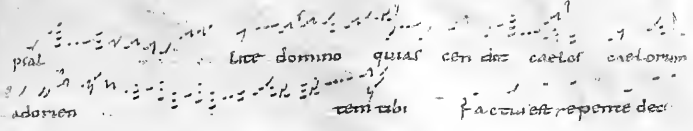 psal lite domino quias cen dit caelos caelorum
adorien tem tibi factus est repente dec